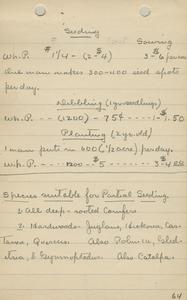 Seeding
Sowing
Wh.P. #1¼ - (2-4) 3-$6 per acre
One man makes 300-400 seed spots
per day.
Dibbling (1 yr. seedlings)
W.P. -- (1200) - 75¢ -- 1-1.50
Planting (2 yr. old)
1 man puts in 600 (½ acre) per day.
W.P. - 1200 -- 5 - 3-4
Species suitable for Partial Seeding
1. All deep-rooted Conifers
2. Hardwoods: Juglans, Hickoria, Cas-
tanea, Quercus. Also Robinia, Gledi-
tsia, & Gymnopladus. Also Catalpa.
64